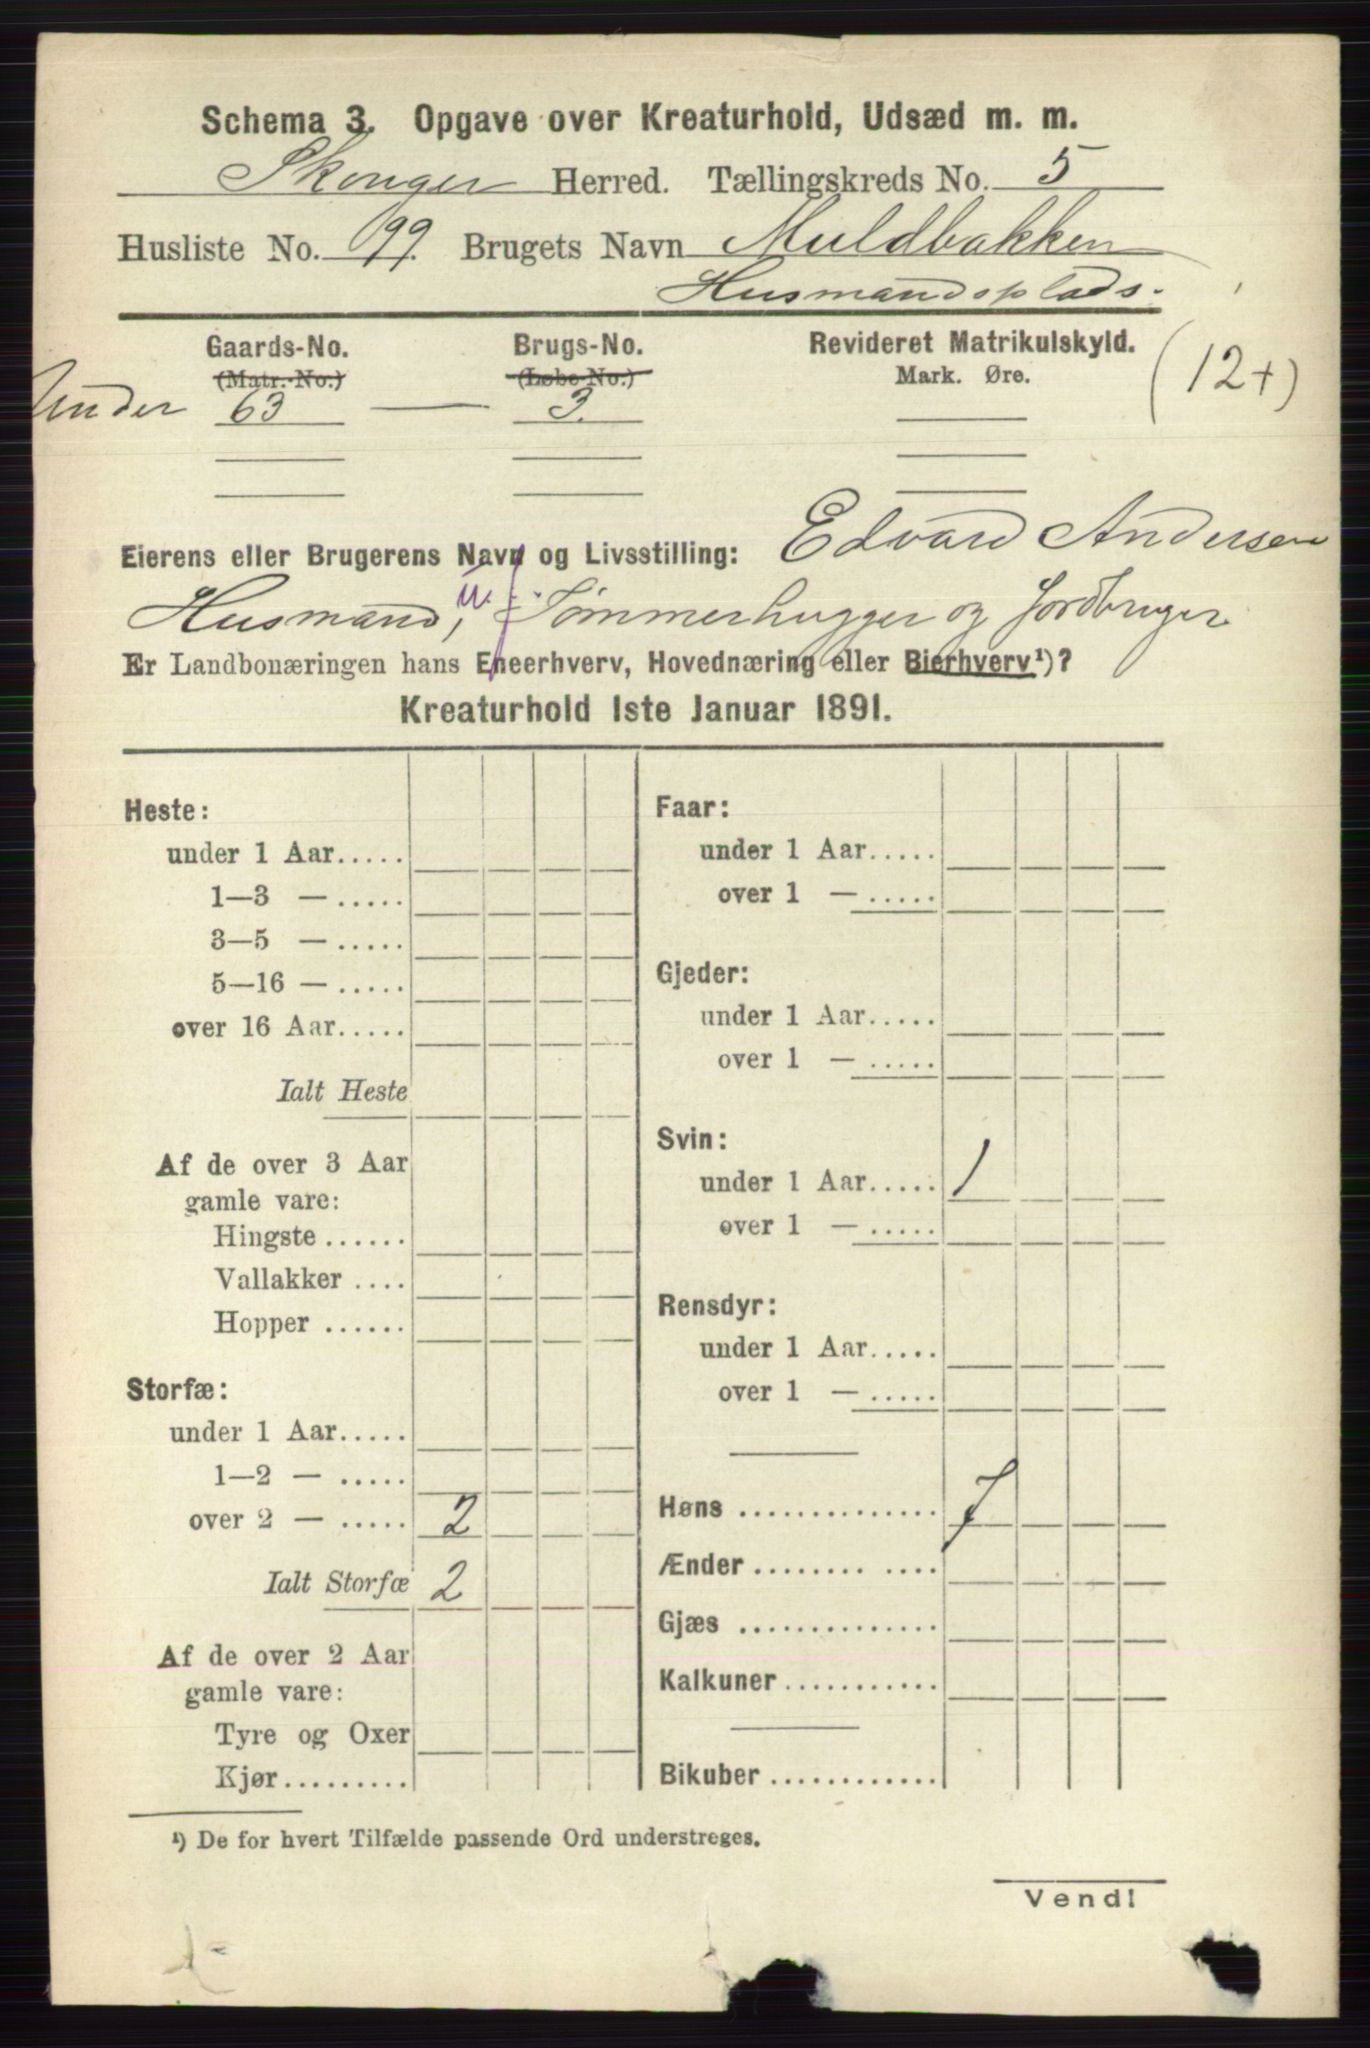 Schema 3. Opgave over Kreaturhold, Udsæd m. m.
Skonger Herred. Tællingskreds No. 5
Husliste No. 99. Brugets Navn Muldbakken
Husmandsplads.
Gaards-No. Brugs-No. Revideret Matrikulskyld.
(Matr.-No.) (Løbe-No.) Mark. Øre. (12+)
Under 63 — 3.
Eierens eller Brugerens Navn og Livsstilling: Edvard Andersen
Husmand, Tømmerhugger og Jordbruger
Er Landbonæringen hans Eneerhverv, Hovednæring eller Bierhverv¹)?
Kreaturhold 1ste Januar 1891.
Heste:
under 1 Aar.....
1—3 — .....
3—5 — .....
5—16 — .....
over 16 Aar.....
Ialt Heste
Af de over 3 Aar
gamle vare:
Hingste ......
Vallakker ....
Hopper ......
Storfæ:
under 1 Aar.....
1—2 — .....
over 2 — ..... 2
Ialt Storfæ 2
Af de over 2 Aar
gamle vare:
Tyre og Oxer
Kjør.........
Faar:
under 1 Aar.....
over 1 — .....
Gjeder:
under 1 Aar.....
over 1 — .....
Svin:
under 1 Aar..... 1
over 1 — .....
Rensdyr:
under 1 Aar.....
over 1 — .....
Høns .............. 7
Ænder ........ ....
Gjæs ..............
Kalkuner...........
Bikuber ............
¹) De for hvert Tilfælde passende Ord understreges.
Vend!